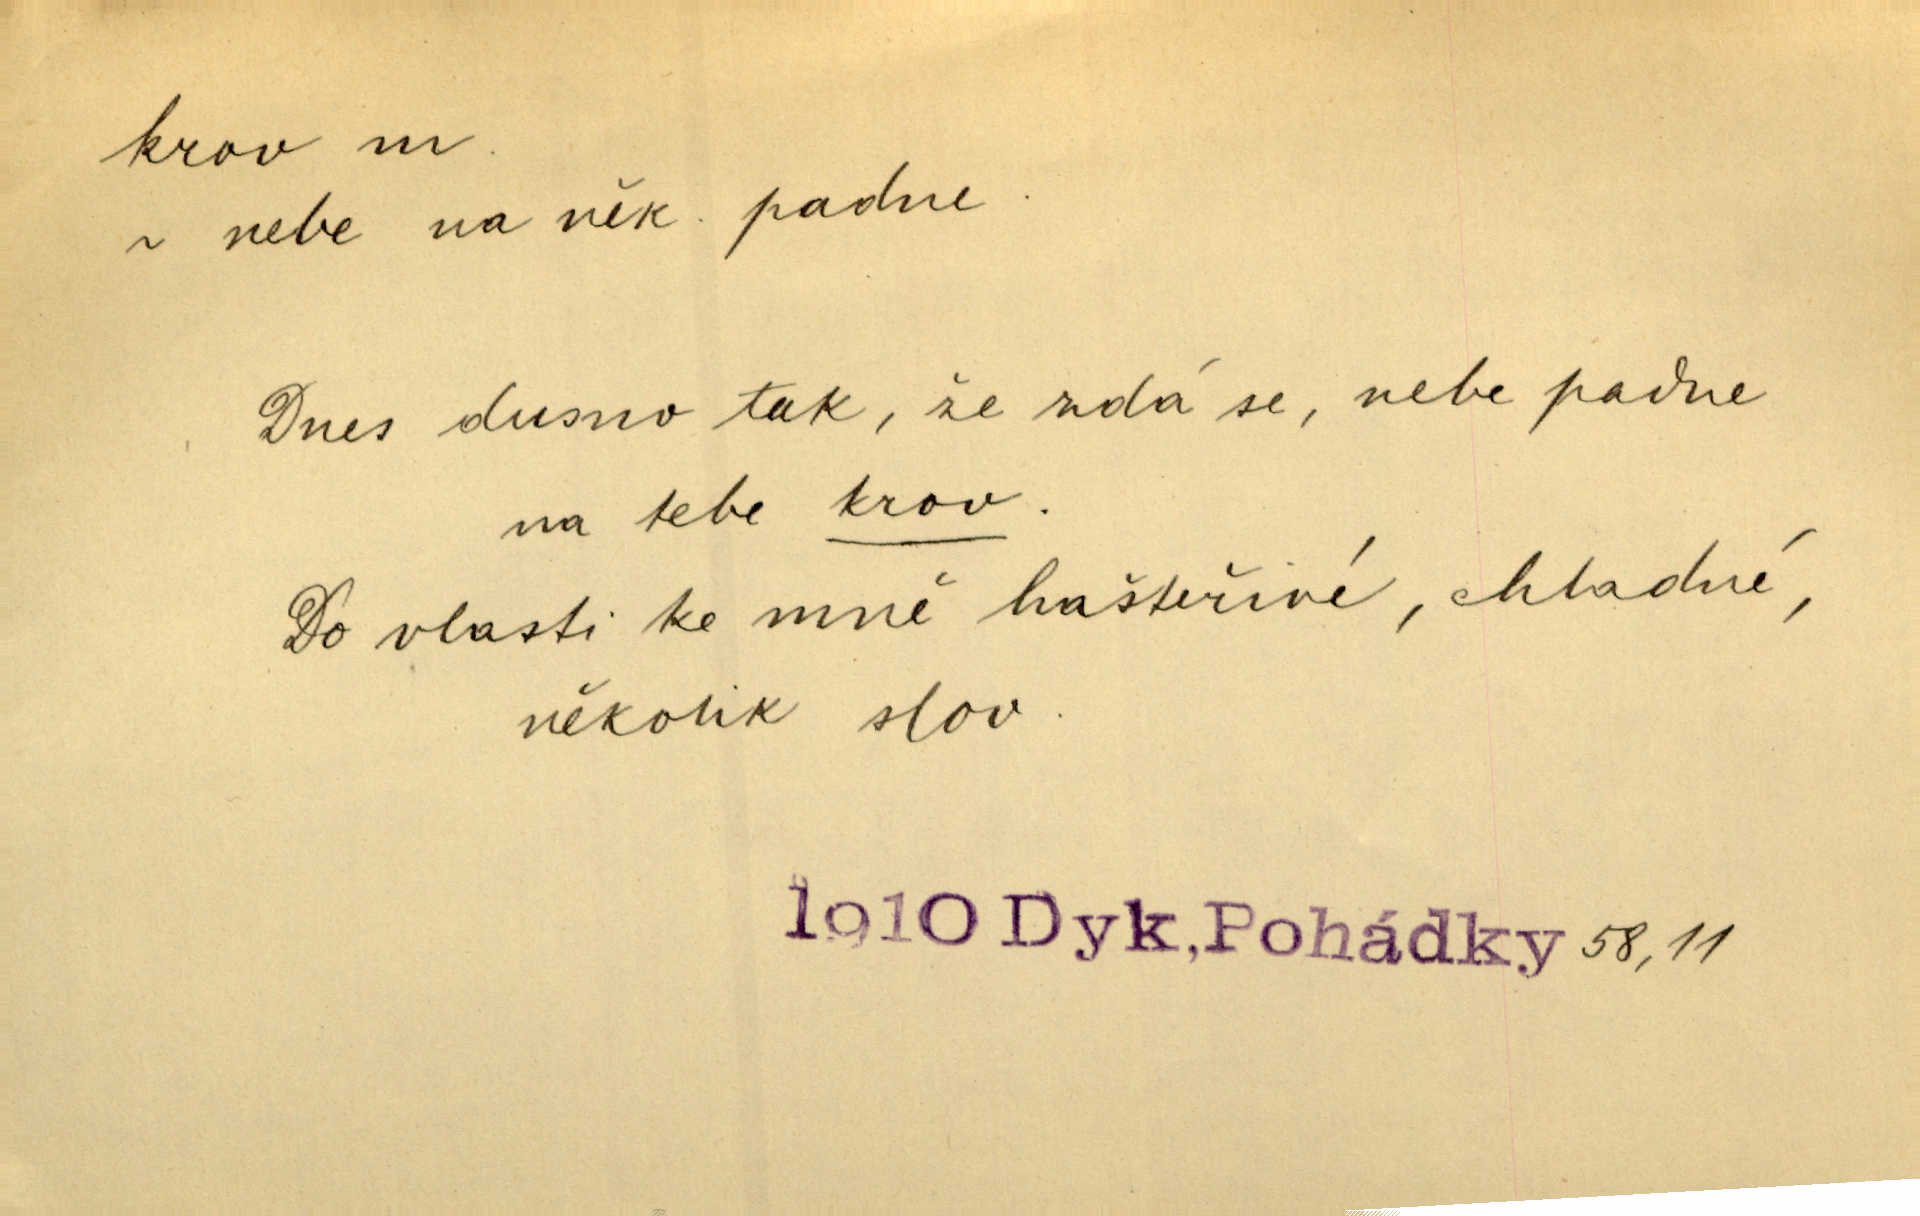 krov m.
~ nebe na něk. padne.
Dnes dusno tak, že zdá se, nebe padne
na tebe krov.
Do vlasti ke mně hašteřivé, chladné,
několik slov.
1910 Dyk, Pohádky 58, 11